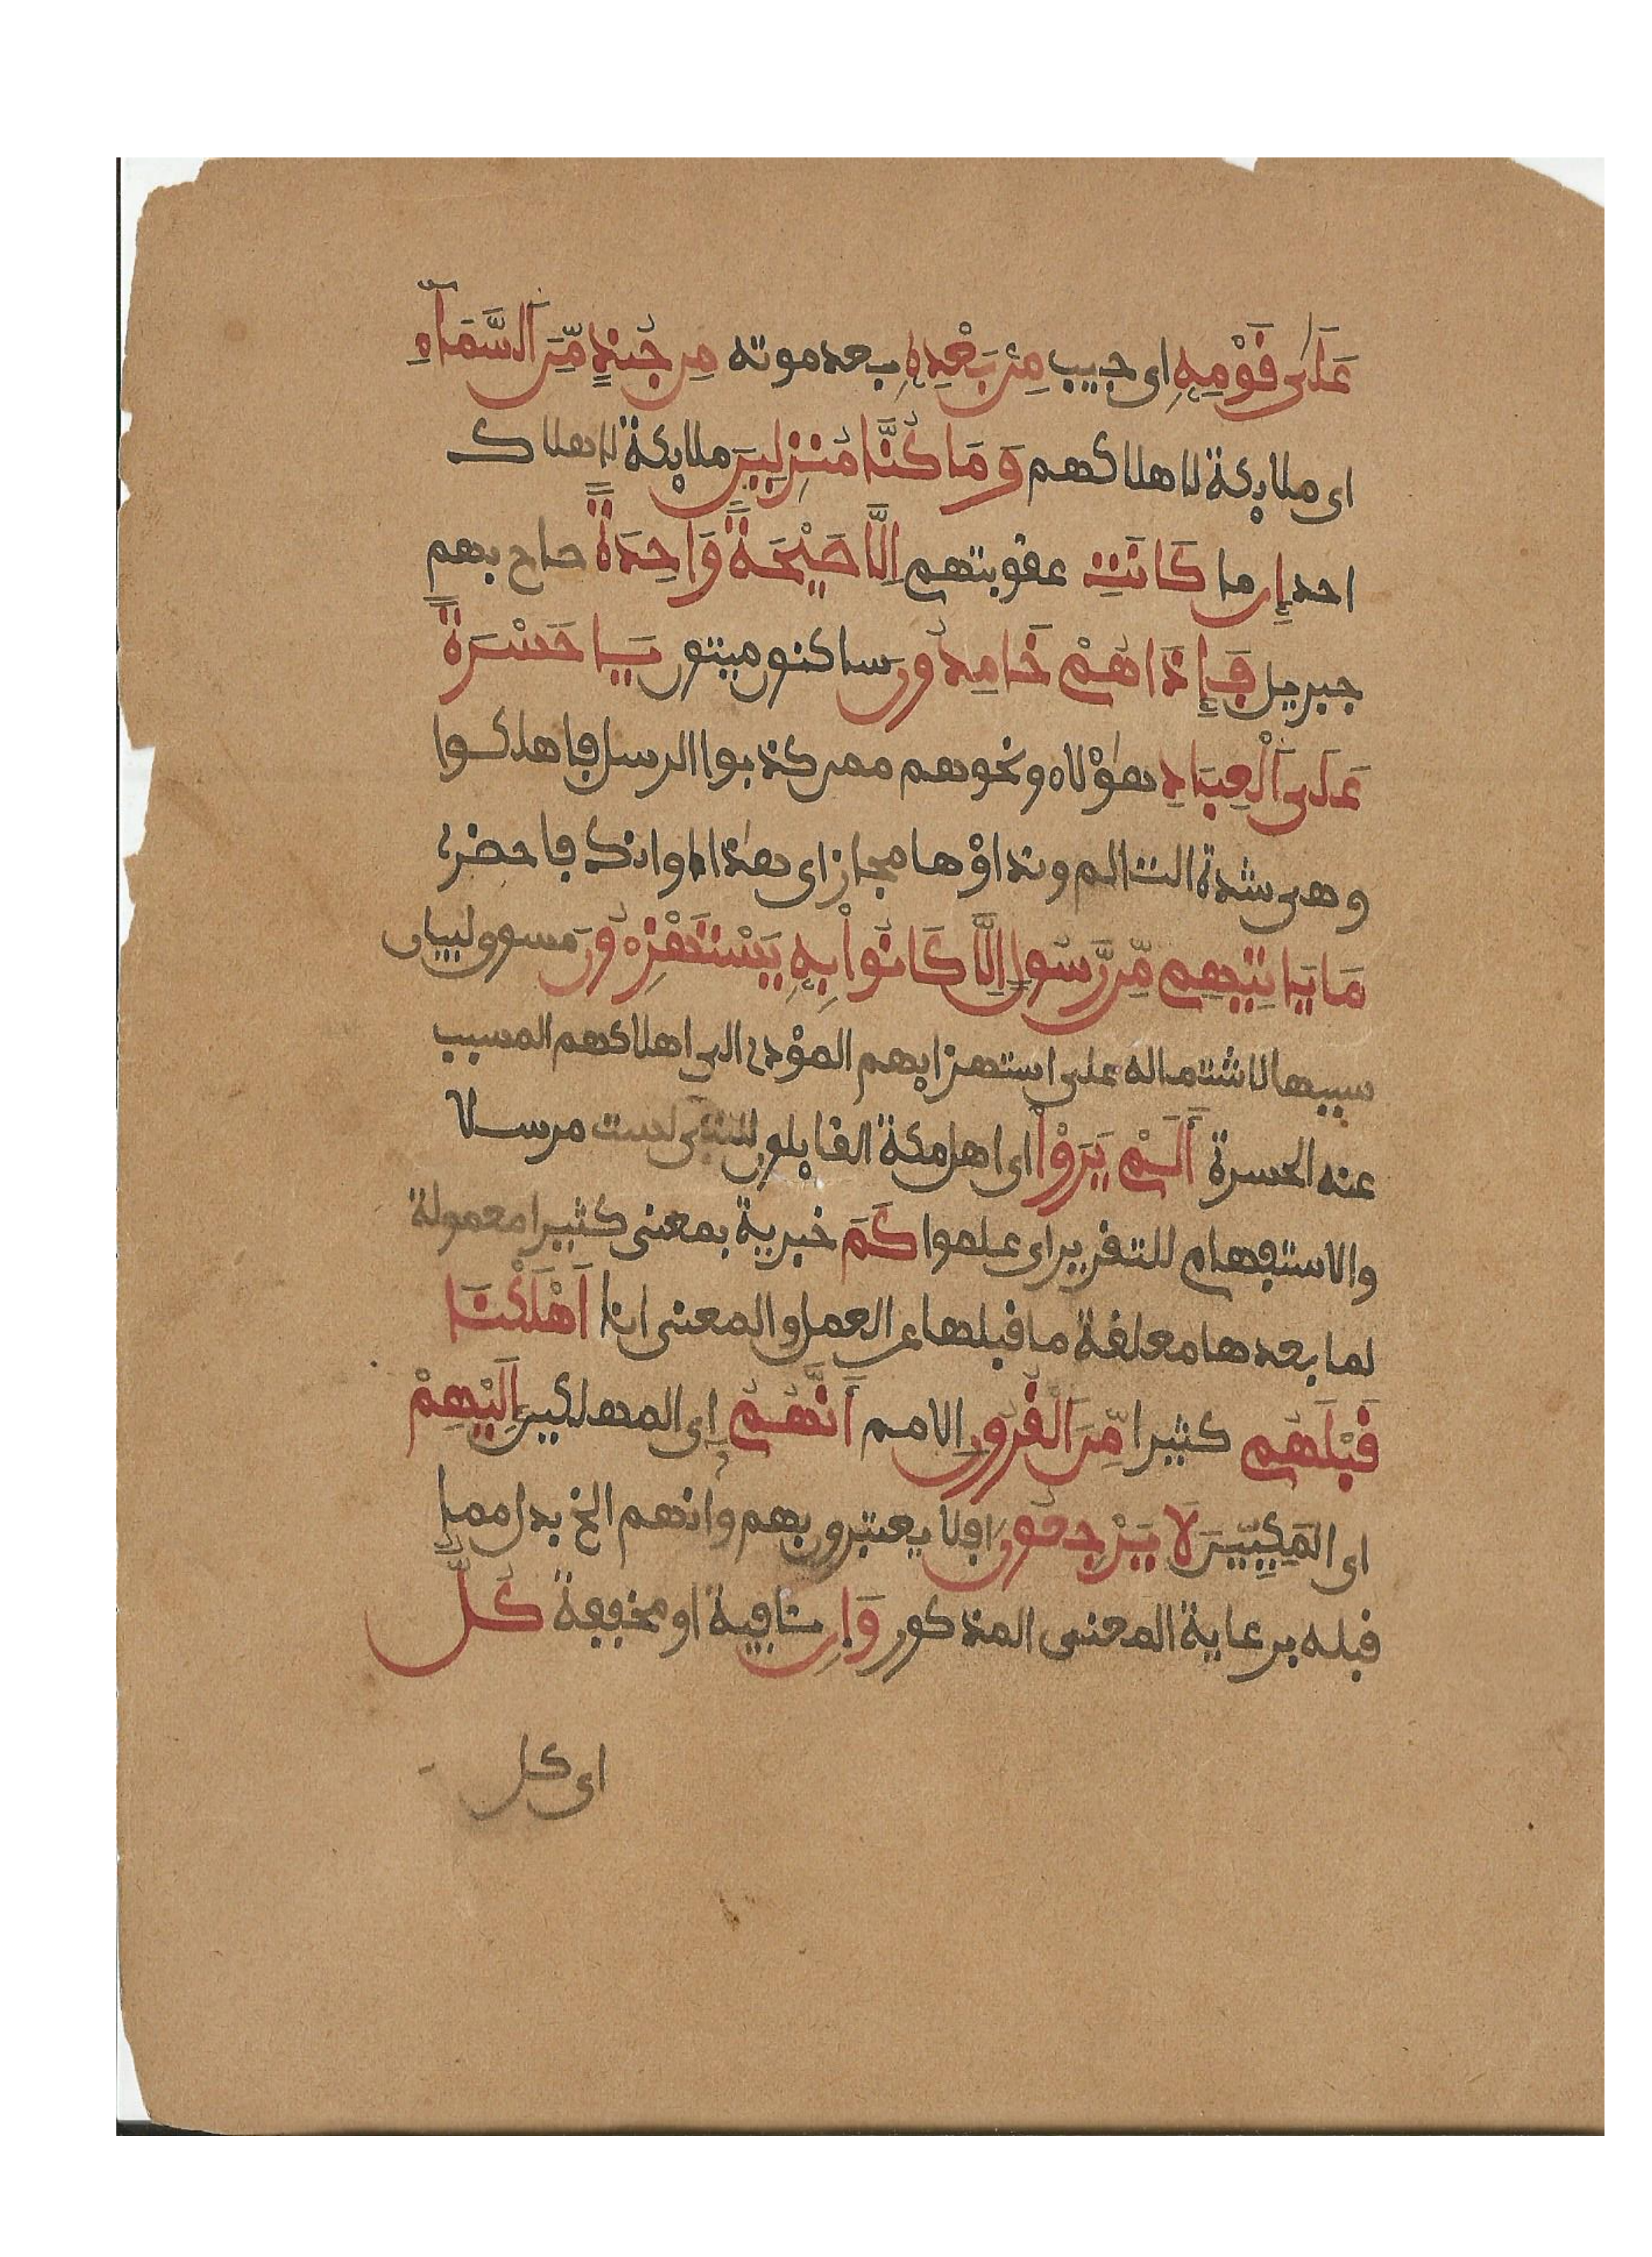 عَلَىٰ قَوْمِهِ اى حبيب مِنۢ بَعْدِهِ بعد موته مِن جُندٍ مِّنَ ٱلسَّمَآءِ
اى ملايكة لاهلاكهم وَمَا كُنَّا مُنزِلِينَ ملايكة لاهلاك
احد إِن ما كَانَتِ عقوبتهم اِلَّا صَيْحَةً وَاحِدَةً صاح بهم
جبريل فَإِذَا هُمْ خَامِدُونَ ساكنون ميتون يَا حَسْرَةً
عَلَى ٱلْعِبَادِ هؤلاء ونحوهم ممن كذبوا الرسل فاهلكوا
وهى شدة التالم ونداؤها مجاز اى هذا اوانك فاحضرى
مَا يَاتِيهِم مِّن رَّسُولٍ اِلَّا كَانُواْ بِهِ يَسْتَهْزِءُونَ مسوق لبيان
سببها لاشتماله على استهزايهم المؤدى الى اهلاكهم المسبب
عنه الحسرة أَلَمْ يَرَوْا اى اهل مكة القايلون للنبى لست مرسلا
والاستفهام للتقرير اى علموا كَمَ خبرية بمعنى كثيرا معمولة
لما بعدها معلقة ما قبلها عن العمل والمعنى انا اَهْلَكْنَا
قَبْلَهُم كثيرا مِّنَ ٱلْقُرُونِ الامم أَنَّهُمُ اى المهلكين إِلَيْهِمْ
اى المَكِيِّينَ لَا يَرْجِعُونَ افلا يعتبرون بهم وانهم الخ بدل مما
قبله برعاية المعنى المذكور وَإِن نافية او مخففة كُلٌّ
اى كل